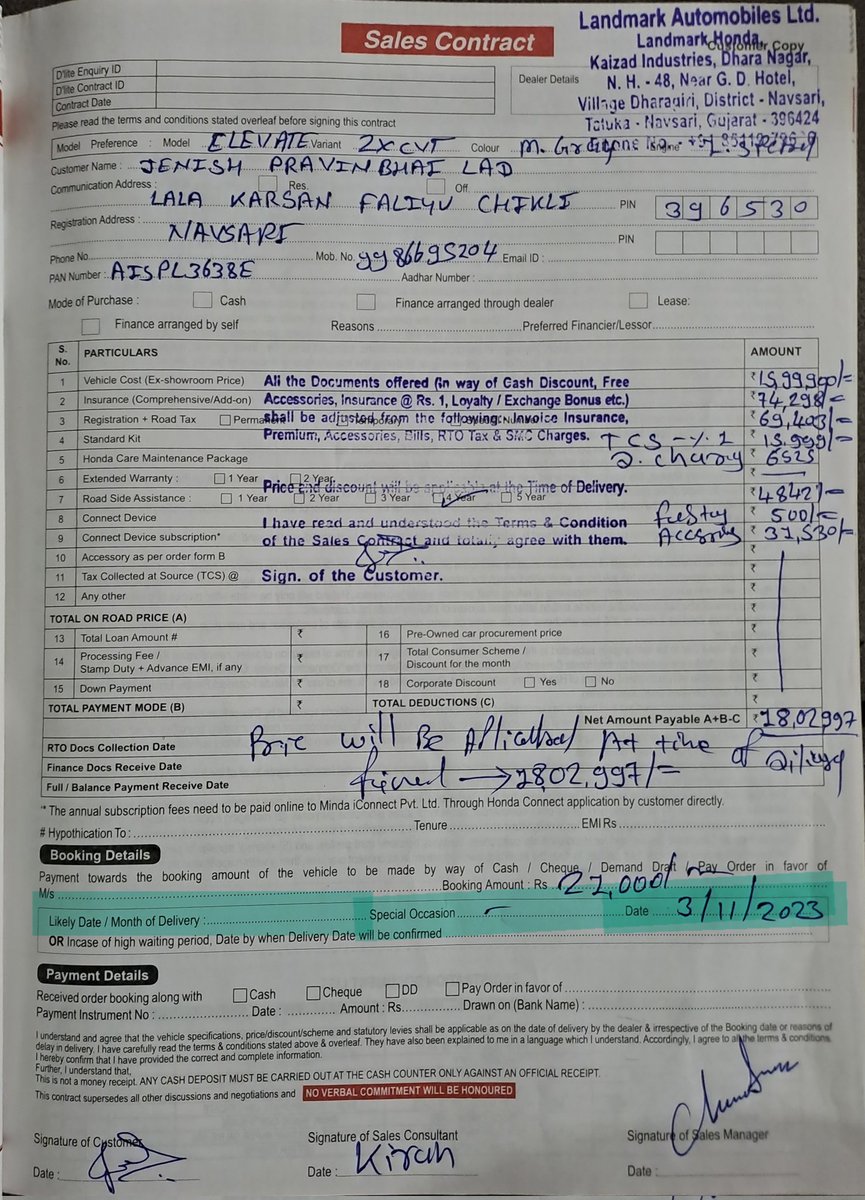 Sales Contract
Landmark Automobiles Ltd.
Landmark Honda,
Customer Copy
Kaizad Industries, Dhara Nagar,
N. H. - 48, Near G. D. Hotel,
Village Dharagiri, District - Navsari,
Taluka - Navsari, Gujarat - 396424
D'lite Enquiry ID
D'lite Contract ID
Contract Date
Dealer Details
Please read the terms and conditions stated overleaf before signing this contract
Model Preference : Model ELEVATE Variant ZXCVT Colour
Customer Name : JENISH PRAVINBHAI LAD
Communication Address : Res. Off.
LALA KARSAN FALIYU CHIKLI PIN 396530
Registration Address :
NAVSARI PIN
Phone No. Mob. No. Email ID :
PAN Number : Aadhar Number :
Mode of Purchase : Cash Finance arranged through dealer Lease:
Finance arranged by self Reasons Preferred Financier/Lessor
S. No. PARTICULARS AMOUNT
1 Vehicle Cost (Ex-showroom Price) All the Documents offered (in way of Cash Discount, Free
2 Insurance (Comprehensive/Add-on) Accessories, Insurance @ Rs. 1, Loyalty / Exchange Bonus etc.) ₹74,298/-
3 Registration + Road Tax Permanent shall be adjusted from the following: Invoice Insurance, ₹69,403/-
4 Standard Kit Premium, Accessories, Bills, RTO Tax & SMC Charges. TCS -%1 ₹15,999/-
5 Honda Care Maintenance Package ₹6525
6 Extended Warranty : 1 Year 2 Year ₹
Price and discount will be applicable at the Time of Delivery.
7 Road Side Assistance : 1 Year 2 Year 3 Year 4 Year 5 Year ₹4842/-
8 Connect Device I have read and understood the Terms & Condition ₹500/-
9 Connect Device subscription* of the Sales Contract and totally agree with them. ₹31,530/-
10 Accessory as per order form B ₹
11 Tax Collected at Source (TCS) @ Sign. of the Customer. ₹
12 Any other ₹
TOTAL ON ROAD PRICE (A) ₹
13 Total Loan Amount # ₹ 16 Pre-Owned car procurement price ₹
14 Processing Fee / Stamp Duty + Advance EMI, if any ₹ 17 Total Consumer Scheme / Discount for the month ₹
15 Down Payment ₹ 18 Corporate Discount Yes No ₹
TOTAL PAYMENT MODE (B) ₹ TOTAL DEDUCTIONS (C) ₹
Net Amount Payable A+B-C ₹18,02,997
RTO Docs Collection Date
will Be At time of
Finance Docs Receive Date
Full / Balance Payment Receive Date 1802,997/-
* The annual subscription fees need to be paid online to Minda iConnect Pvt. Ltd. Through Honda Connect application by customer directly.
# Hypothication To : Tenure EMI Rs
Booking Details
Payment towards the booking amount of the vehicle to be made by way of Cash / Cheque / Demand Draft / Pay Order in favor of
M/s Booking Amount : Rs 21,000/-
Likely Date / Month of Delivery : Special Occasion - Date 3/11/2023
OR Incase of high waiting period, Date by when Delivery Date will be confirmed
Payment Details
Received order booking along with Cash Cheque DD Pay Order in favor of
Payment Instrument No : Date : Amount : Rs. Drawn on (Bank Name) :
I understand and agree that the vehicle specifications, price/discount/scheme and statutory levies shall be applicable as on the date of delivery by the dealer & irrespective of the Booking date or reasons of
delay in delivery. I have carefully read the terms & conditions stated above & overleaf. They have also been explained to me in a language which I understand. Accordingly, I agree to all the terms & conditions.
I hereby confirm that I have provided the correct and complete information.
Further, I understand that,
This is not a money receipt. ANY CASH DEPOSIT MUST BE CARRIED OUT AT THE CASH COUNTER ONLY AGAINST AN OFFICIAL RECEIPT.
This contract supersedes all other discussions and negotiations and NO VERBAL COMMITMENT WILL BE HONOURED
Signature of Customer Signature of Sales Consultant Signature of Sales Manager
Kirah
Date : Date : Date :